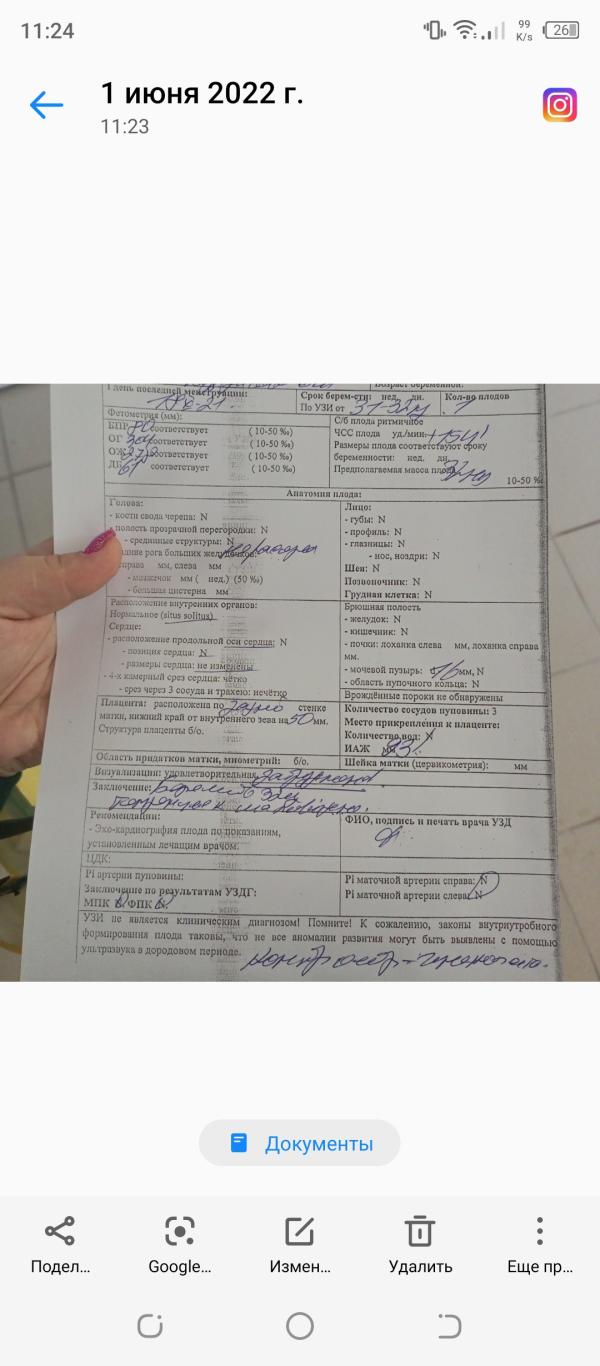 11:24
99
K/s
26
1 июня 2022 г.
11:23
1 день последней менструации:
Срок берем-сти: нед. дн.
Кол-во плодов
По УЗИ от
1
Фетометрия (мм):
С/б плода ритмичное
БПР 80 соответствует (10-50 ‰)
ЧСС плода уд./мин.
ОГ соответствует (10-50 ‰)
Размеры плода соответствуют сроку
ОЖ соответствует (10-50 ‰)
беременности: нед. дн.
ДБ соответствует (10-50 ‰)
Предполагаемая масса плода
10-50 ‰
Анатомия плода:
Голова:
- кости свода черепа: N
- полость прозрачной перегородки: N
- срединные структуры: N
рога больших желудочков:
мм, слева мм
- мозжечок мм ( нед.) (50 ‰)
- большая цистерна мм
Лицо:
- губы: N
- профиль: N
- глазницы: N
- нос, ноздри: N
Шея: N
Позвоночник: N
Грудная клетка: N
Расположение внутренних органов:
Нормальное (situs solitus)
Сердце:
- расположение продольной оси сердца: N
- позиция сердца: N
- размеры сердца: не изменены
- 4-х камерный срез сердца: чётко
- срез через 3 сосуда и трахею: нечётко
Брюшная полость
- желудок: N
- кишечник: N
- почки: лоханка слева мм, лоханка справа
мм.
- мочевой пузырь: мм, N
- область пупочного кольца: N
Врождённые пороки не обнаружены
Плацента: расположена по стенке
матки, нижний край от внутреннего зева на 50 мм.
Структура плаценты б/о.
Количество сосудов пуповины: 3
Место прикрепления к плаценте:
Количество вод: N
ИАЖ
Область придатков матки, миометрий: б/о.
Шейка матки (цервикометрия): мм
Визуализация: удовлетворительная
Заключение:
Рекомендации:
- Эхо-кардиография плода по показаниям,
установленным лечащим врачом.
ФИО, подпись и печать врача УЗД
ЦДК:
Pi артерии пуповины:
Заключение по результатам УЗДГ:
МПК N ФПК N
Pi маточной артерии справа: N
Pi маточной артерии слева: N
УЗИ не является клиническим диагнозом! Помните! К сожалению, законы внутриутробного
формирования плода таковы, что не все аномалии развития могут быть выявлены с помощью
ультразвука в дородовом периоде.
Документы
Подел...
Google...
Измен...
Удалить
Еще пр...